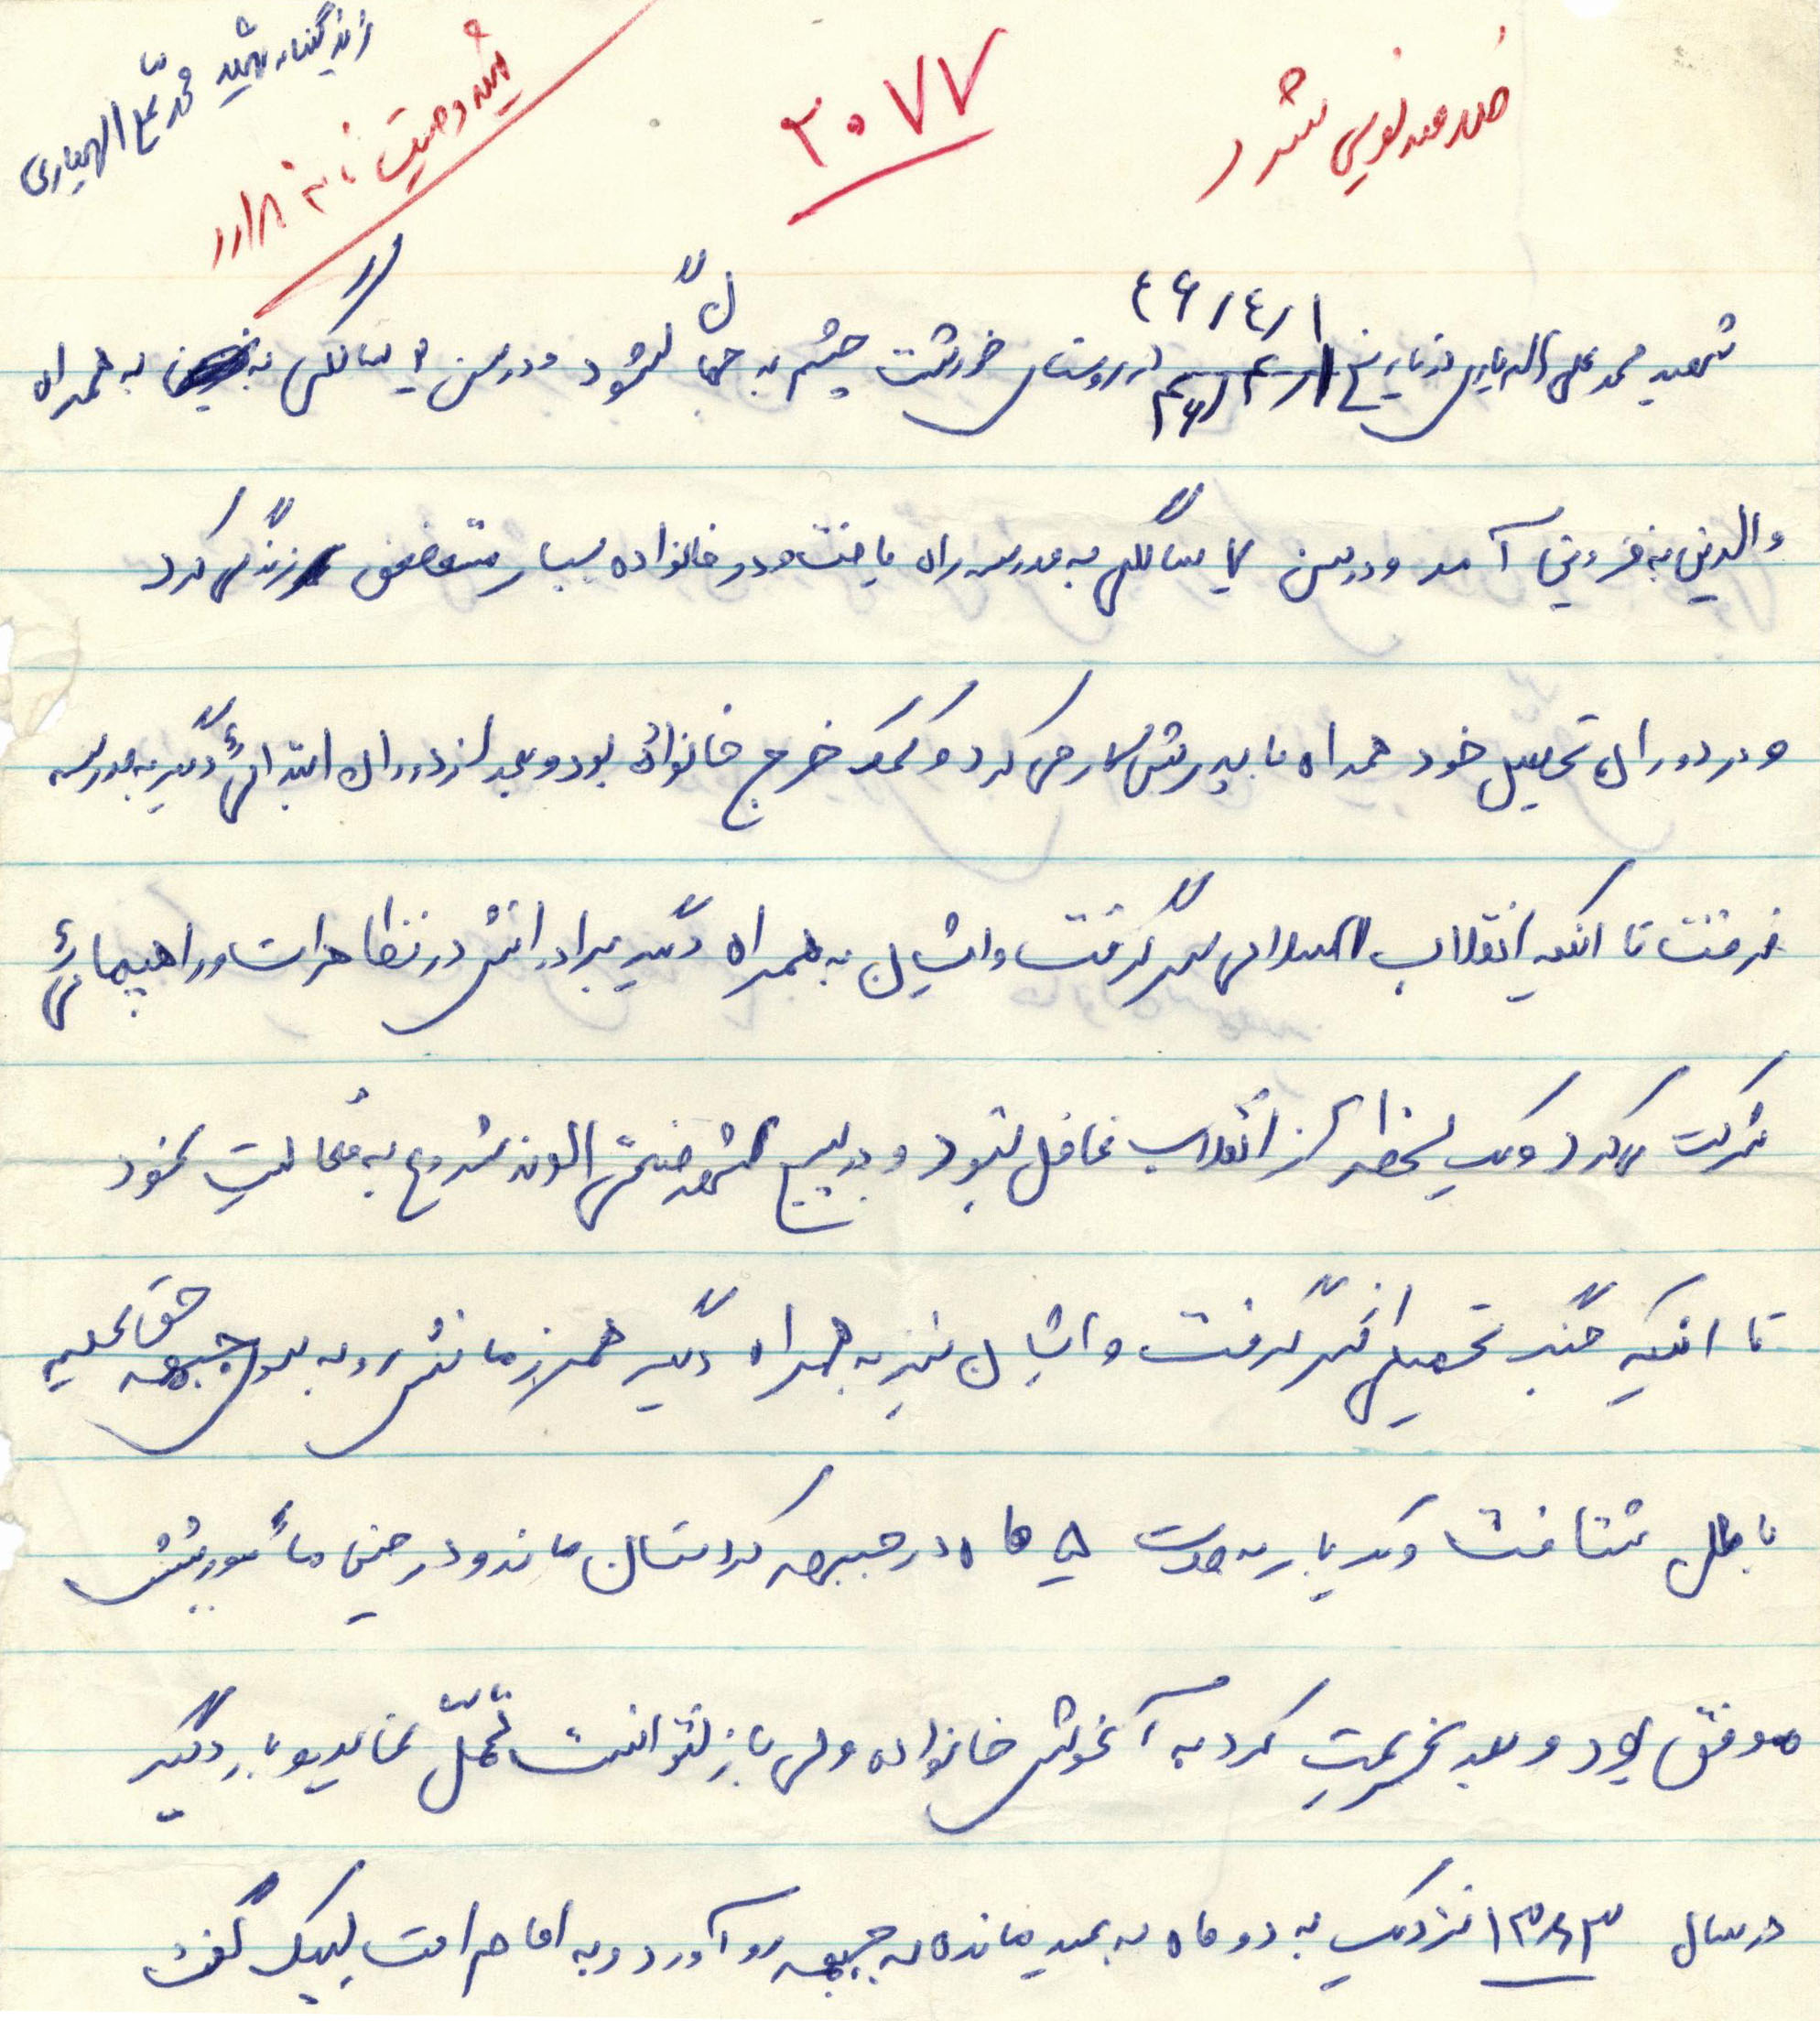 زندگینامه شهید محمد علی الهیاری
۲۰۷۷
شهید محمد علی اله یاری در تاریخ ۴۶/۴/۱ در روستای خورشت چشم به جهان گشود و در سن سالگی به همراه
والدین به قزوین آمد و در سن ۷ سالگی به مدرسه راه یافت و در خانواده بسیار مستضعفی زندگی کرد
و در دوران تحصیل خود همراه با پدرش کار می کرد و کمک خرج خانواده بود و بعد از دوران ابتدائی دگیر به مدرسه
نرفت تا اینکه انقلاب اسلامی اوج گرفت و ایشان به همراه دیگر برادرانش در تظاهرات و راهپیمائی
شرکت می کرد و یک لحظه از انقلاب غافل نبود و در بسیج شهر صنعتی الوند شروع به فعالیت نمود
تا اینکه جنگ تحمیلی اوج گرفت و ایشان نیز به همراه دیگر همرزمانش رو به سوی جبهه حق علیه
باطل شتافت و یک بار به مدت ۵ ماه در جبهه کردستان ماند و در حین مأموریتش
موفق بود و بعد عزیمت کرد به آغوش خانواده ولی باز نتوانست تحمّل نماید و بار دیگر
در سال ۱۳۶۳ نزدیک به دو ماه به عید مانده به جبهه رو آورد و به امام امت لبیک گفت